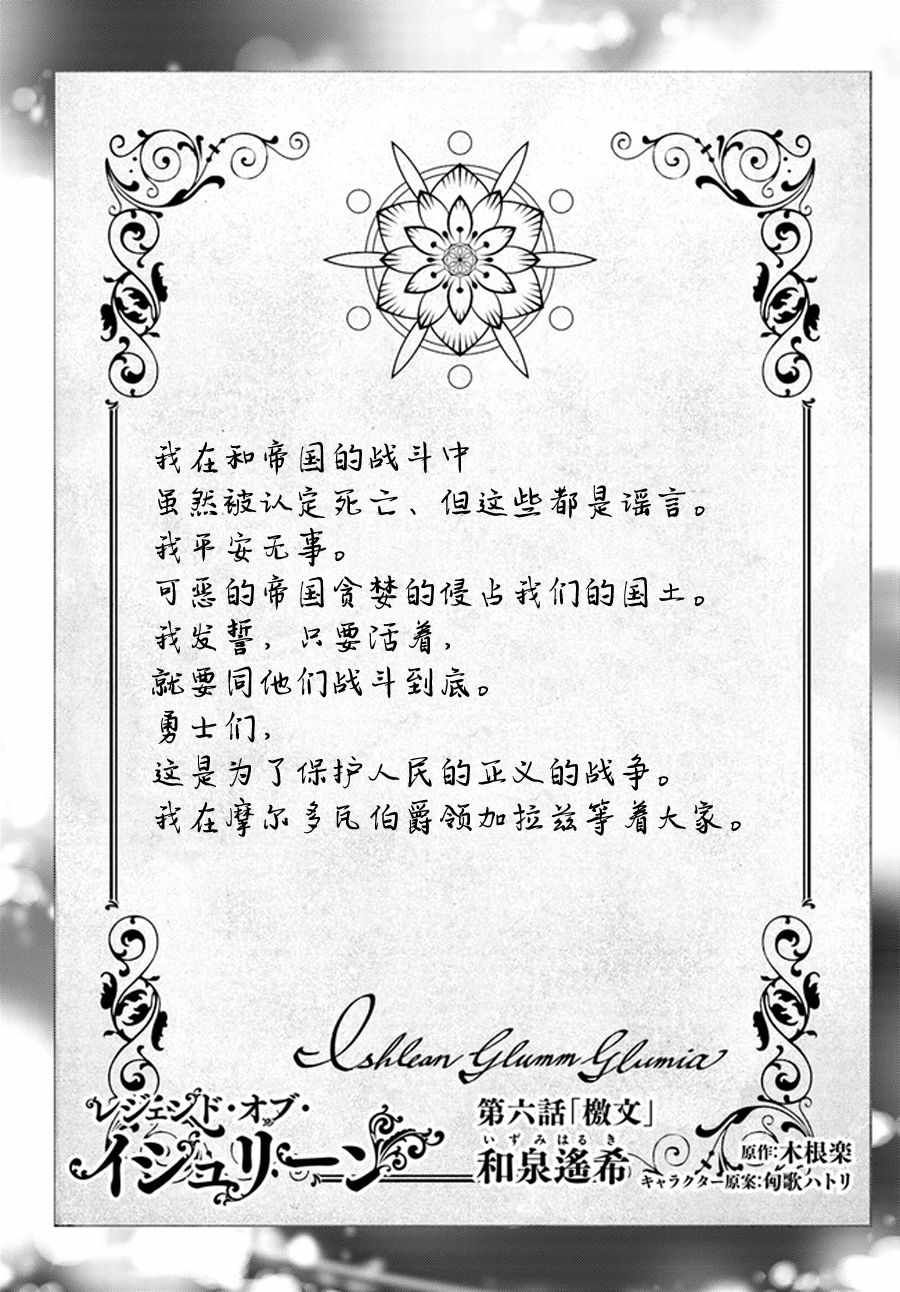 我在和帝国的战斗中
虽然被认定死亡、但这些都是谣言。
我平安无事。
可恶的帝国贪婪的侵占我们的国土。
我发誓，只要活着，
就要同他们战斗到底。
勇士们，
这是为了保护人民的正义的战争。
我在摩尔多瓦伯爵领加拉兹等着大家。
Ishlean Glumm Glumia
レジェンド・オブ・
イシュリーン
第六話「檄文」
いずみはるき
和泉遙希
原作:木根楽
キャラクター原案:匈歌ハトリ